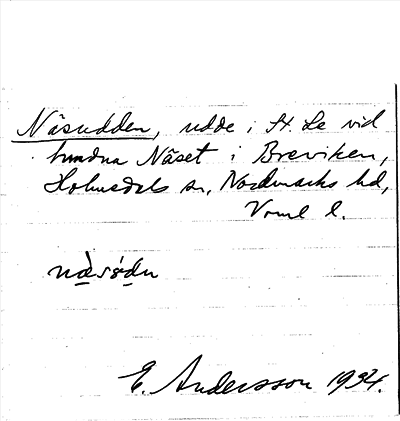 Näsudden, udde i St. Le vid
hmdna Näset i Breviken,
Holmedals sn, Nordmarks hd,
Vrml l.
nὰ̲sǿd̲n
E. Andersson 1934.